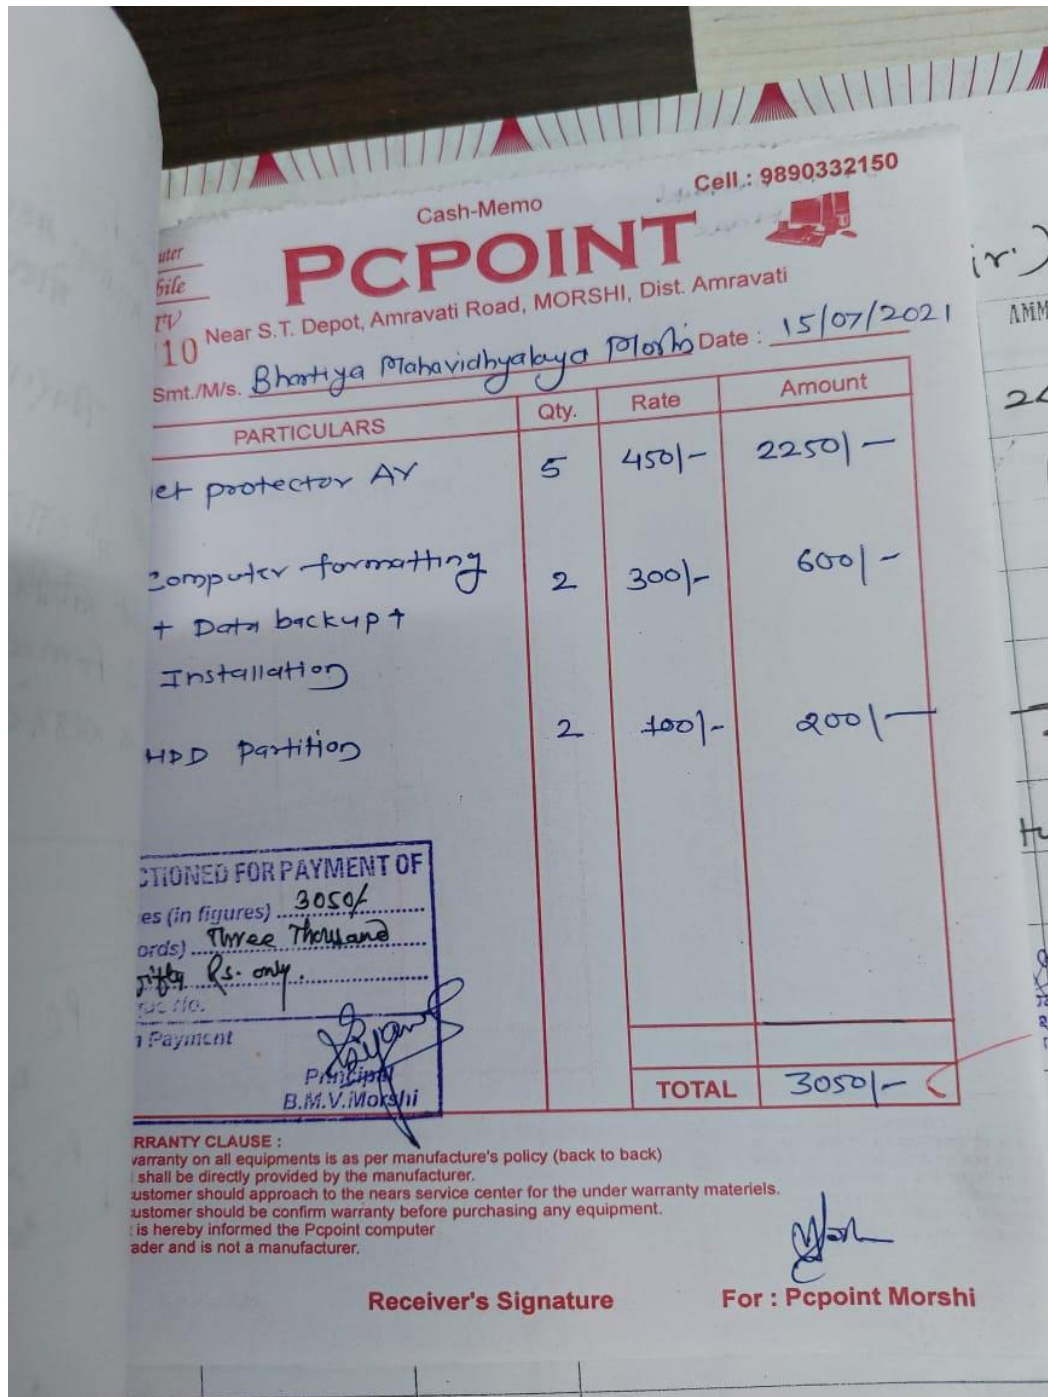 Cell.: 9890332150
Cash-Memo
PCPOINT
uter
bile
TV
10
Near S.T. Depot, Amravati Road, MORSHI, Dist. Amravati
Smt./M/s. Bhartiya Mahavidhyalaya Morshi Date : 15/07/2021
PARTICULARS Qty. Rate Amount
et protector AV 5 450/- 2250/-
Computer formatting 2 300/- 600/-
+ Data backup +
Installation
HDD Partition 2 100/- 200/-
CTIONED FOR PAYMENT OF
es (in figures) 3050/-
ords) Three Thousand
fifty Rs. only.
No.
n Payment
Principal
B.M.V.Morshi
TOTAL 3050/-
RRANTY CLAUSE :
warranty on all equipments is as per manufacture's policy (back to back)
shall be directly provided by the manufacturer.
ustomer should approach to the nears service center for the under warranty materiels.
ustomer should be confirm warranty before purchasing any equipment.
is hereby informed the Pcpoint computer
ader and is not a manufacturer.
Receiver's Signature For : Pcpoint Morshi
ir.)
AMM